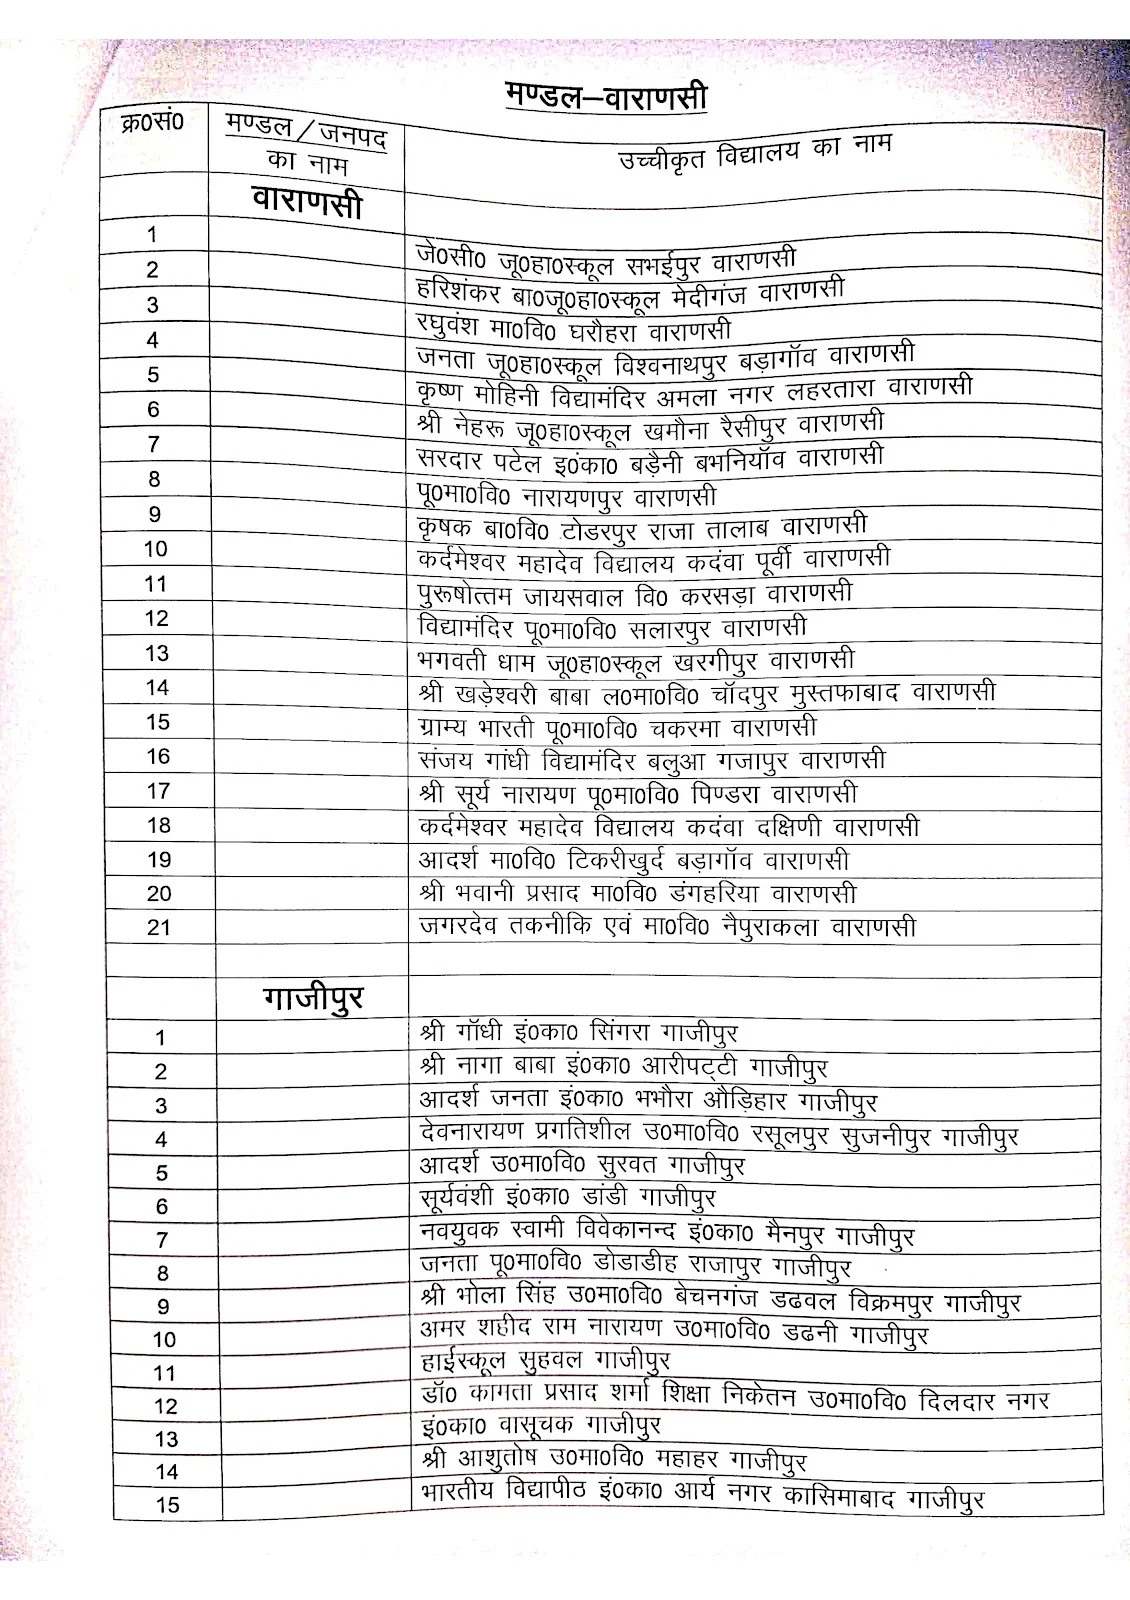 मण्डल–वाराणसी
क्र0सं0 मण्डल/जनपद का नाम उच्चीकृत विद्यालय का नाम
वाराणसी
1 जे0सी0 जू0हा0स्कूल सभईपुर वाराणसी
2 हरिशंकर बा0जू0हा0स्कूल मेदीगंज वाराणसी
3 रघुवंश मा0वि0 घरौहरा वाराणसी
4 जनता जू0हा0स्कूल विश्वनाथपुर बड़ागॉव वाराणसी
5 कृष्ण मोहिनी विद्यामंदिर अमला नगर लहरतारा वाराणसी
6 श्री नेहरू जू0हा0स्कूल खमौना रैसीपुर वाराणसी
7 सरदार पटेल इ0ंका0 बड़ैनी बभनियॉव वाराणसी
8 पू0मा0वि0 नारायणपुर वाराणसी
9 कृषक बा0वि0 टोडरपुर राजा तालाब वाराणसी
10 कर्दमेश्वर महादेव विद्यालय कदंवा पूर्वी वाराणसी
11 पुरूषोत्तम जायसवाल वि0 करसड़ा वाराणसी
12 विद्यामंदिर पू0मा0वि0 सलारपुर वाराणसी
13 भगवती धाम जू0हा0स्कूल खरगीपुर वाराणसी
14 श्री खड़ेश्वरी बाबा ल0मा0वि0 चॉदपुर मुस्तफाबाद वाराणसी
15 ग्राम्य भारती पू0मा0वि0 चकरमा वाराणसी
16 संजय गांधी विद्यामंदिर बलुआ गजापुर वाराणसी
17 श्री सूर्य नारायण पू0मा0वि0 पिण्डरा वाराणसी
18 कर्दमेश्वर महादेव विद्यालय कदंवा दक्षिणी वाराणसी
19 आदर्श मा0वि0 टिकरीखुर्द बड़ागॉव वाराणसी
20 श्री भवानी प्रसाद मा0वि0 डंगहरिया वाराणसी
21 जगरदेव तकनीकि एवं मा0वि0 नैपुराकला वाराणसी
गाजीपुर
1 श्री गॉधी इं0का0 सिंगरा गाजीपुर
2 श्री नागा बाबा इं0का0 आरीपट्टी गाजीपुर
3 आदर्श जनता इं0का0 भभौरा औड़िहार गाजीपुर
4 देवनारायण प्रगतिशील उ0मा0वि0 रसूलपुर सुजनीपुर गाजीपुर
5 आदर्श उ0मा0वि0 सुरवत गाजीपुर
6 सूर्यवंशी इं0का0 डांडी गाजीपुर
7 नवयुवक स्वामी विवेकानन्द इं0का0 मैनपुर गाजीपुर
8 जनता पू0मा0वि0 डोडाडीह राजापुर गाजीपुर
9 श्री भोला सिंह उ0मा0वि0 बेचनगंज डढवल विक्रमपुर गाजीपुर
10 अमर शहीद राम नारायण उ0मा0वि0 डढनी गाजीपुर
11 हाईस्कूल सुहवल गाजीपुर
12 डॉ0 कामता प्रसाद शर्मा शिक्षा निकेतन उ0मा0वि0 दिलदार नगर
13 इं0का0 वासूचक गाजीपुर
14 श्री आशुतोष उ0मा0वि0 महाहर गाजीपुर
15 भारतीय विद्यापीठ इं0का0 आर्य नगर कासिमाबाद गाजीपुर